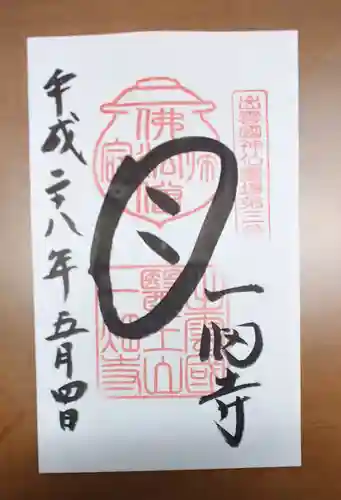 出雲國神仏霊場第三番
一畑寺
目
佛法僧
出雲國
醫王山
一畑寺
平成二十八年五月四日